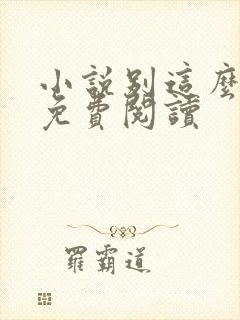 小說別這麼
免費閱讀
羅霸道